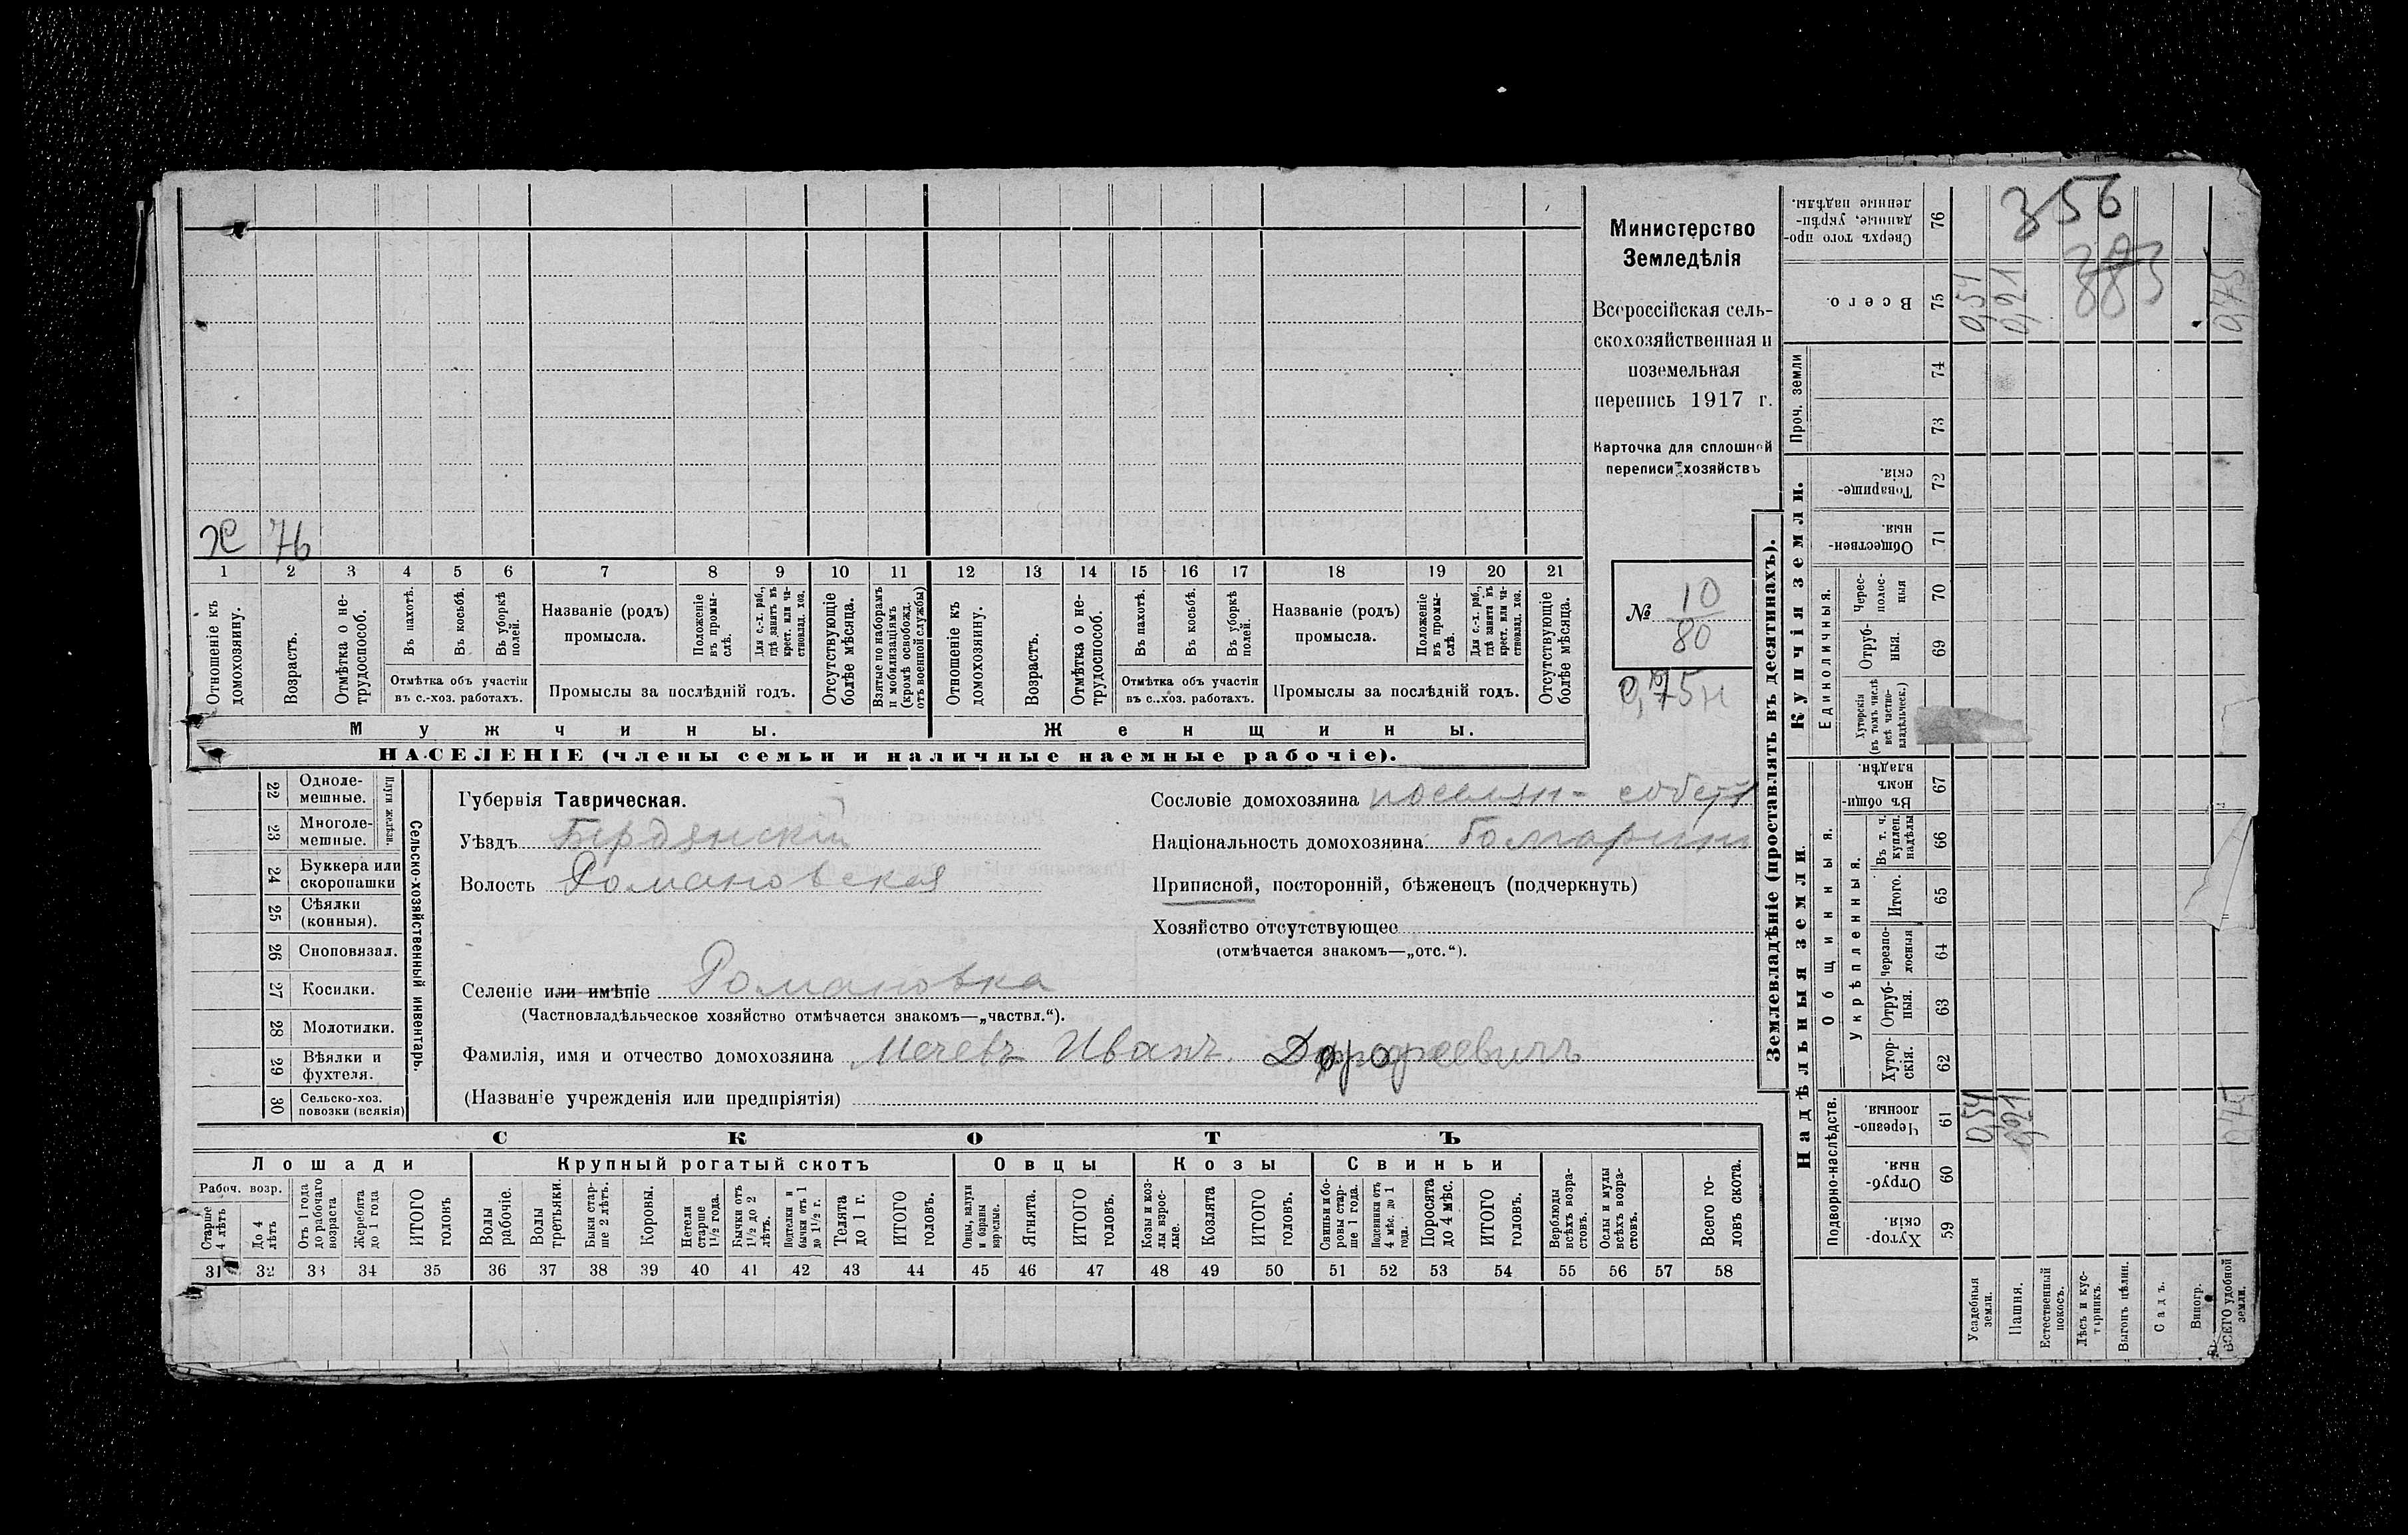 Министерство
Земледѣлія
Всероссійская сель-
скохозяйственная и
поземельная
перепись 1917 г.
Карточка для сплошной
переписи хозяйствъ
№ 10
80
0,75 н
х 76
1 2 3 4 5 6 7 8 9 10 11 12 13 14 15 16 17 18 19 20 21
Отношеніе къ домохозяину.
Возрастъ.
Отмѣтка о не-трудоспособ.
Въ пахотѣ.
Въ косьбѣ.
Въ уборкѣ полей.
Отмѣтка объ участіи
въ с.-хоз. работахъ.
Названіе (родъ)
промысла.
Положеніе въ промы-слѣ.
Для с.-х. раб., гдѣ занятъ въ крест. или ча-стновлад. хоз.
Промыслы за послѣдній годъ.
Отсутствующіе болѣе мѣсяца.
Взятые по наборамъ и мобилизаціямъ (кромѣ освобожд. отъ военной службы)
Отношеніе къ домохозяину.
Возрастъ.
Отмѣтка о не-трудоспособ.
Въ пахотѣ.
Въ косьбѣ.
Въ уборкѣ полей.
Отмѣтка объ участіи
въ с.-хоз. работахъ.
Названіе (родъ)
промысла.
Положеніе въ промы-слѣ.
Для с.-х. раб., гдѣ занята въ крест. или ча-стновлад. хоз.
Промыслы за послѣдній годъ.
Отсутствующіе болѣе мѣсяца.
Мужчины. Женщины.
НАСЕЛЕНІЕ (члены семьи и наличные наемные рабочіе).
22 Одноле-мешные.
23 Многоле-мешные.
Плуги желѣзн.
24 Буккера или скоропашки
25 Сѣялки (конныя).
26 Сноповязал.
27 Косилки.
28 Молотилки.
29 Вѣялки и фухтеля.
30 Сельско-хоз. повозки (всякія)
Сельско-хозяйственный инвентарь.
Губернія Таврическая.
Уѣздъ Бердянский
Волость Романовская
Селеніе или имѣніе Романовка
(Частновладѣльческое хозяйство отмѣчается знакомъ—„частвл.“).
Фамилія, имя и отчество домохозяина Мечевъ Иванъ Дорофеевичъ
(Названіе учрежденія или предпріятія)
Сословіе домохозяина поселян- собств
Національность домохозяина болгаринъ
Приписной, посторонній, бѣженецъ (подчеркнуть)
Хозяйство отсутствующее
(отмѣчается знакомъ—„отс.“).
СКОТЪ
Лошади
Рабоч. возр.
Старше 4 лѣтъ
До 4 лѣтъ
Отъ 1 года до рабочаго возраста
Жеребята до 1 года
ИТОГО головъ
Крупный рогатый скотъ
Волы рабочіе.
Волы третьяки.
Быки стар-ше 2 лѣтъ.
Коровы.
Нетели старше 1½ года.
Бычки отъ 1½ до 2 лѣтъ.
Подтелки и бычки отъ 1 до 1½ г.
Телята до 1 г.
ИТОГО головъ.
Овцы
Овцы, валухи и бараны взрослые.
Ягнята.
ИТОГО головъ.
Козы
Козы и коз-лы взрос-лые.
Козлята
ИТОГО головъ.
Свиньи
Свиньи и бо-ровы стар-ше 1 года.
Подсвинки отъ 4 мѣс. до 1 года.
Поросята до 4 мѣс.
ИТОГО головъ.
Верблюды всѣхъ возра-стовъ.
Ослы и мулы всѣхъ возра-стовъ.
Всего го-ловъ скота.
31 32 33 34 35 36 37 38 39 40 41 42 43 44 45 46 47 48 49 50 51 52 53 54 55 56 57 58
Землевладѣніе (проставлять въ десятинахъ).
356
383
Сверхъ того про-данные, укрѣп-ленные надѣлы. 76
Всего. 75 0,54 0,21 0,75
Проч. земли 74
73
Купчія земли.
Товарище-скія. 72
Обществен-ныя. 71
Единоличныя.
Черес-полос-ныя 70
Отруб-ныя. 69
Хуторскія (въ томъ числѣ всѣ частно-владѣльческ.)
Надѣльныя земли.
Общинныя.
Въ общи-номъ владѣн. 67
Укрѣпленныя.
Въ т. ч. куплен. надѣлы 66
Итого. 65
Черезпо-лосныя 64
Отруб-ныя. 63
Хутор-скія. 62
Подворно-наслѣдств.
Черезпо-лосныя. 61 0,54 0,21 0,75
Отруб-ныя. 60
Хутор-скія. 59
Усадебныя земли.
Пашня.
Естественный покосъ.
Лѣсъ и кус-тарникъ.
Выгонъ цѣлин.
Садъ.
Виногр.
ВСЕГО удобной земли.